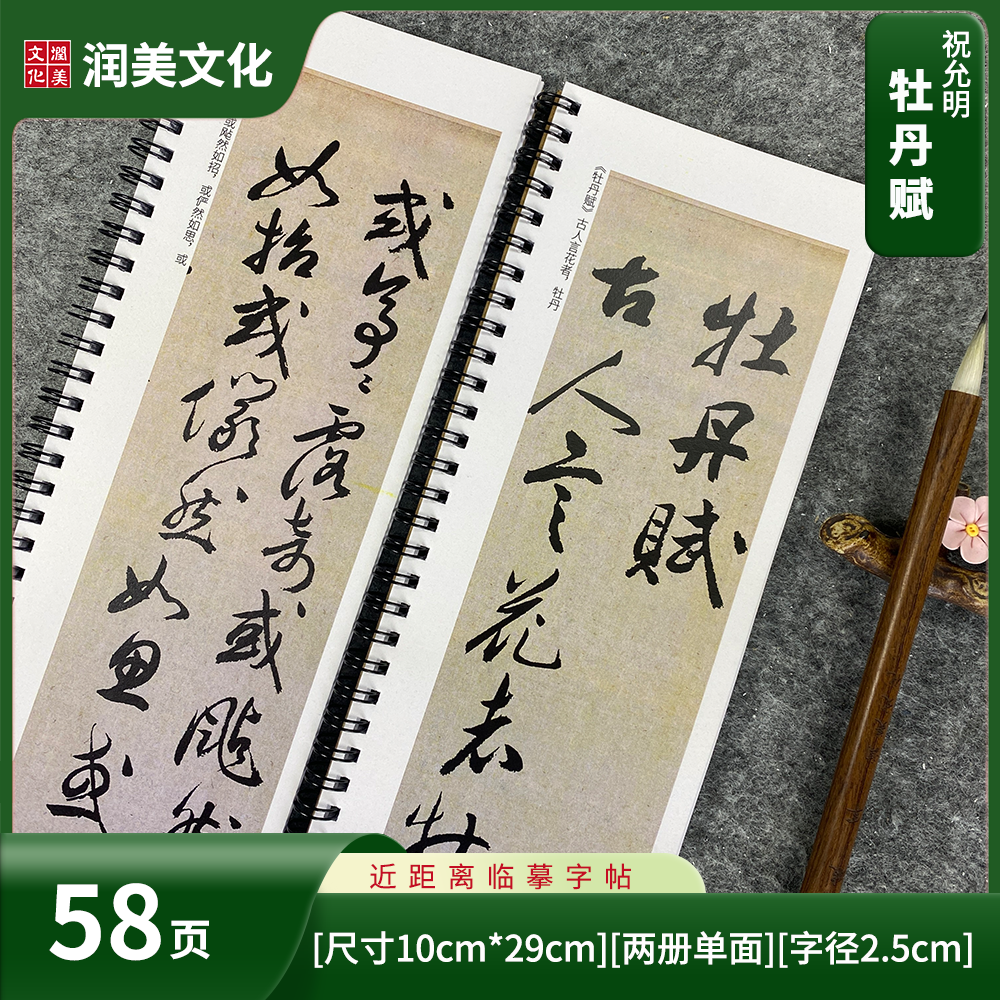 潤美
文化
润美文化
祝允明
牡丹赋
《牡丹赋》 古人言花者，牡丹
牡丹賦
古人言花者牡
或飐然如招，或俨然如思，或
或亭〻露奇或颭然
如招或儼然如思或
近距离临摹字帖
58页
[尺寸10cm*29cm][两册单面][字径2.5cm]